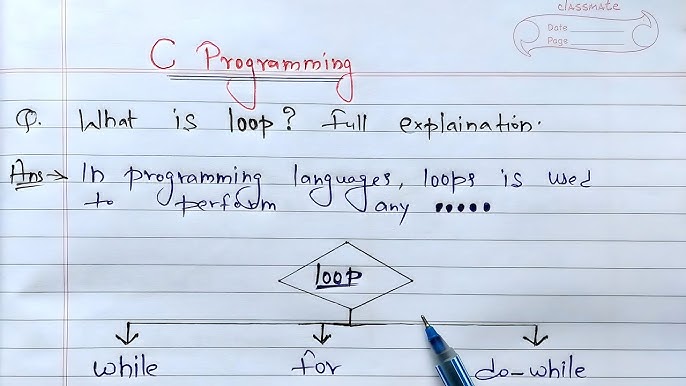 classmate
Date
Page
C Programming
Q. What is loop? full explaination.
Ans→ In programming languages, loops is used
to perform any •••••
loop
while for do-while